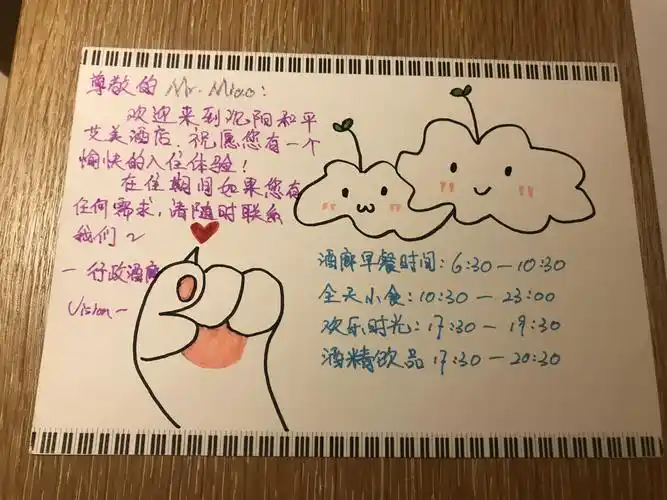 尊敬的 Mr. Miao:
欢迎来到沈阳和平
艾美酒店.祝愿您有一个
愉快的入住体验!
在住期间如果您有
任何需求,请随时联系
我们~
—行政酒廊
Vision~
酒廊早餐时间:6:30—10:30
全天小食:10:30—23:00
欢乐时光:17:30—19:30
酒精饮品17:30—20:30